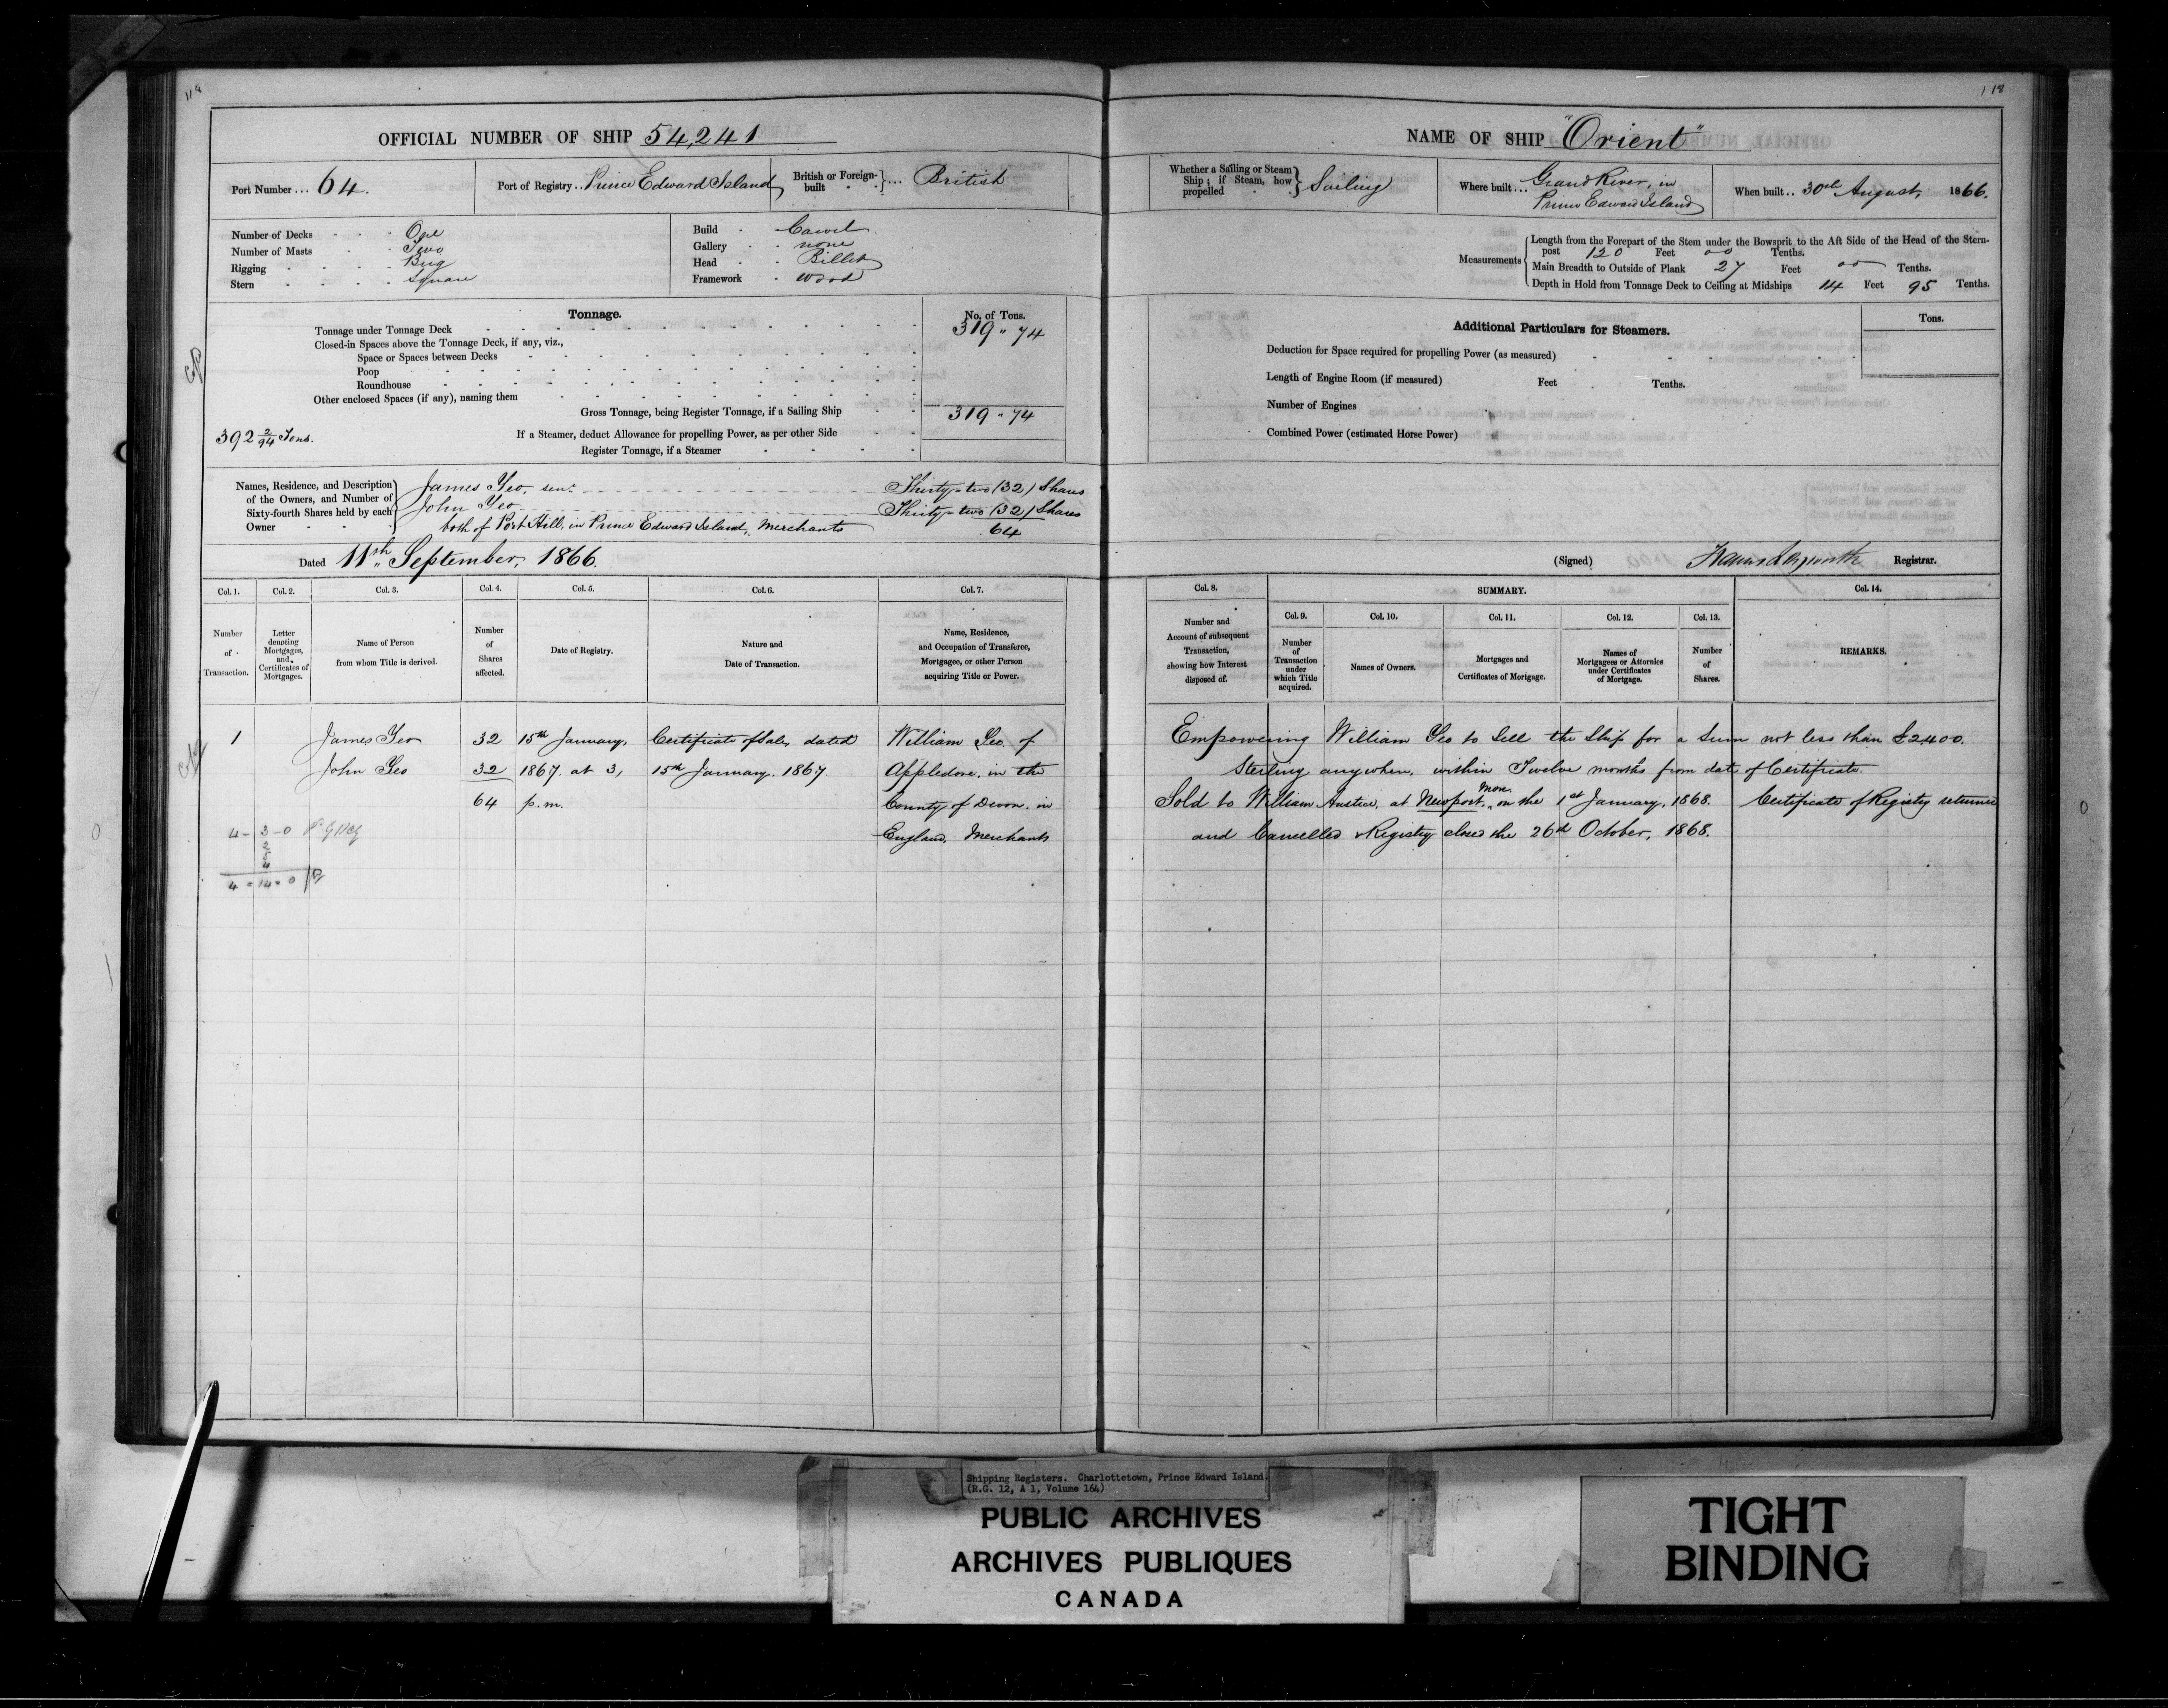 118
OFFICIAL NUMBER OF SHIP 54,241
Port Number ... 64.
Port of Registry .. Prince Edward Island
British or Foreign-built ... British
Number of Decks One
Number of Masts Two
Rigging Brig
Stern Square
Build Carvel
Gallery none
Head Billet
Framework Wood
Tonnage.
No. of Tons.
Tonnage under Tonnage Deck 319 " 74
Closed-in Spaces above the Tonnage Deck, if any, viz.,
Space or Spaces between Decks
Poop
Roundhouse
Other enclosed Spaces (if any), naming them
Gross Tonnage, being Register Tonnage, if a Sailing Ship 319 " 74
392 2/94 Tons.
If a Steamer, deduct Allowance for propelling Power, as per other Side
Register Tonnage, if a Steamer
Names, Residence, and Description of the Owners, and Number of Sixty-fourth Shares held by each Owner
James Yeo, senr. Thirty-two (32) Shares
John Yeo Thirty-two (32) Shares
both of Port Hill, in Prince Edward Island, Merchants 64
Dated 11th September, 1866.
Col. 1. Col. 2. Col. 3. Col. 4. Col. 5. Col. 6. Col. 7.
Number of Transaction.
Letter denoting Mortgages, and Certificates of Mortgages.
Name of Person from whom Title is derived.
Number of Shares affected.
Date of Registry.
Nature and Date of Transaction.
Name, Residence, and Occupation of Transferee, Mortgagee, or other Person acquiring Title or Power.
1 James Yeo 32 15th January, Certificate of Sale, dated William Yeo, of
John Yeo 32 1867, at 3, 15th January, 1867. Appledore, in the
64 p.m. County of Devon, in
England, Merchants
4 - 3 - 0
2
5
4
4 = 14 = 0
118
NAME OF SHIP "Orient"
Whether a Sailing or Steam Ship; if Steam, how propelled Sailing
Where built ... Grand River, in
Prince Edward Island
When built .. 30th August, 1866.
Measurements
Length from the Forepart of the Stem under the Bowsprit to the Aft Side of the Head of the Stern-
post 120 Feet 00 Tenths.
Main Breadth to Outside of Plank 27 Feet 00 Tenths.
Depth in Hold from Tonnage Deck to Ceiling at Midships 14 Feet 95 Tenths.
Additional Particulars for Steamers.
Tons.
Deduction for Space required for propelling Power (as measured)
Length of Engine Room (if measured) Feet Tenths.
Number of Engines
Combined Power (estimated Horse Power)
(Signed) Registrar.
Col. 8. SUMMARY. Col. 14.
Col. 9. Col. 10. Col. 11. Col. 12. Col. 13.
Number and Account of subsequent Transaction, showing how Interest disposed of.
Number of Transaction under which Title acquired.
Names of Owners.
Mortgages and Certificates of Mortgage.
Names of Mortgagees or Attornies under Certificates of Mortgage.
Number of Shares.
REMARKS.
Empowering William Yeo to Sell the Ship for a Sum not less than £2400.
Sterling anywhere, within Twelve months from date of Certificate.
Sold to William Anstice, at Newport, Mon. on the 1st January, 1868. Certificate of Registry returned
and Cancelled & Registry closed the 26th October, 1868.
Shipping Registers. Charlottetown, Prince Edward Island.
(R.G. 12, A 1, Volume 164)
PUBLIC ARCHIVES
ARCHIVES PUBLIQUES
CANADA
TIGHT
BINDING